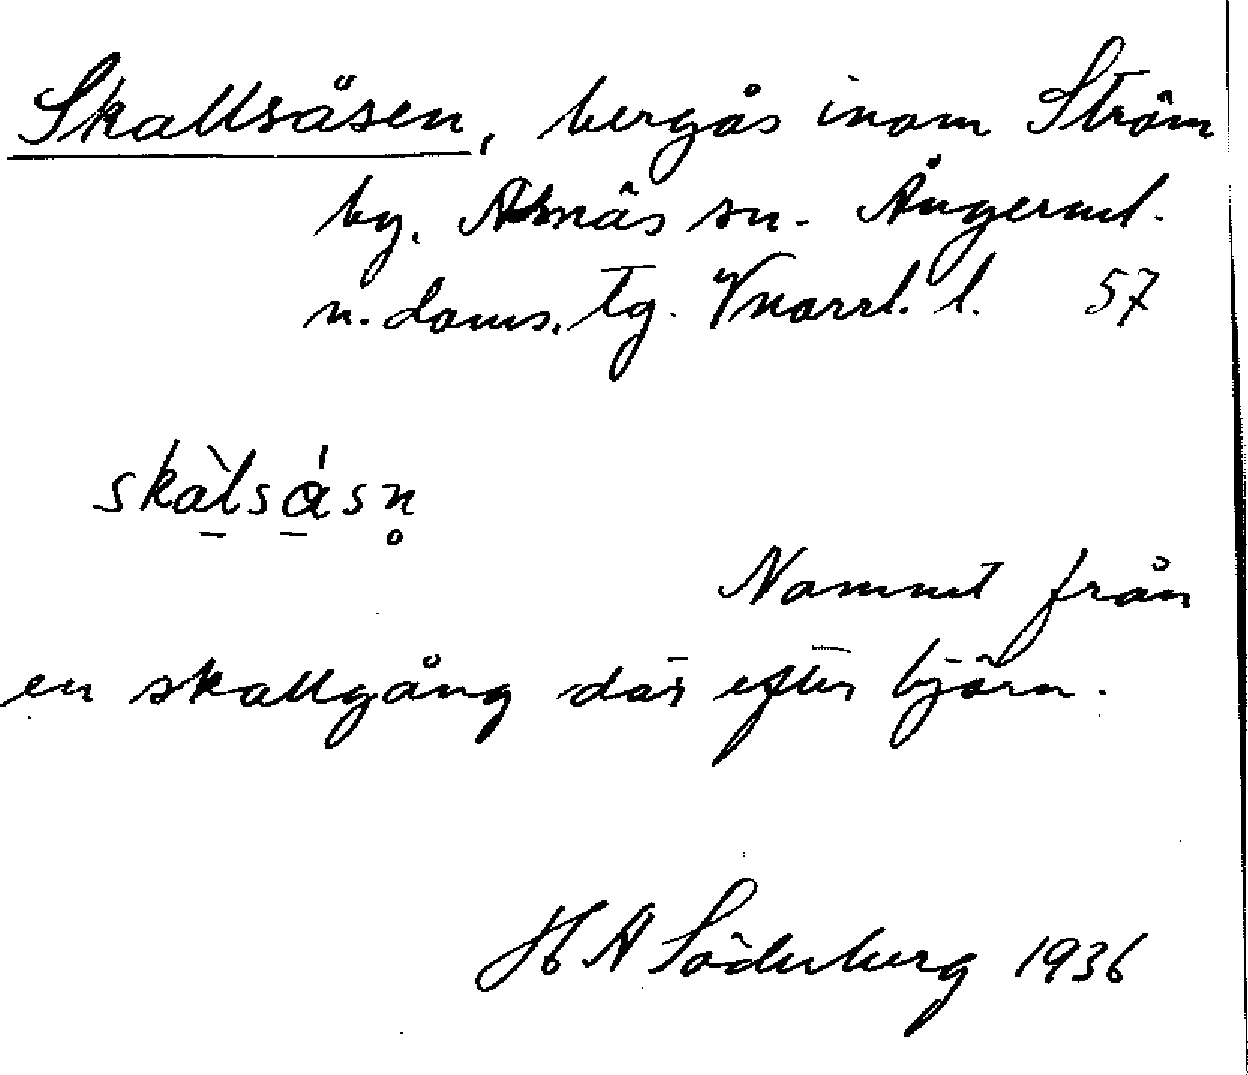 Skallsåsen, bergås inom Ström
by. Arnäs sn. Ångerml.
n. doms. tg. Vnorrl. l. 57
skàlsásn̥
Namnet från
en skallgång där efter björn.
H A Söderberg 1936